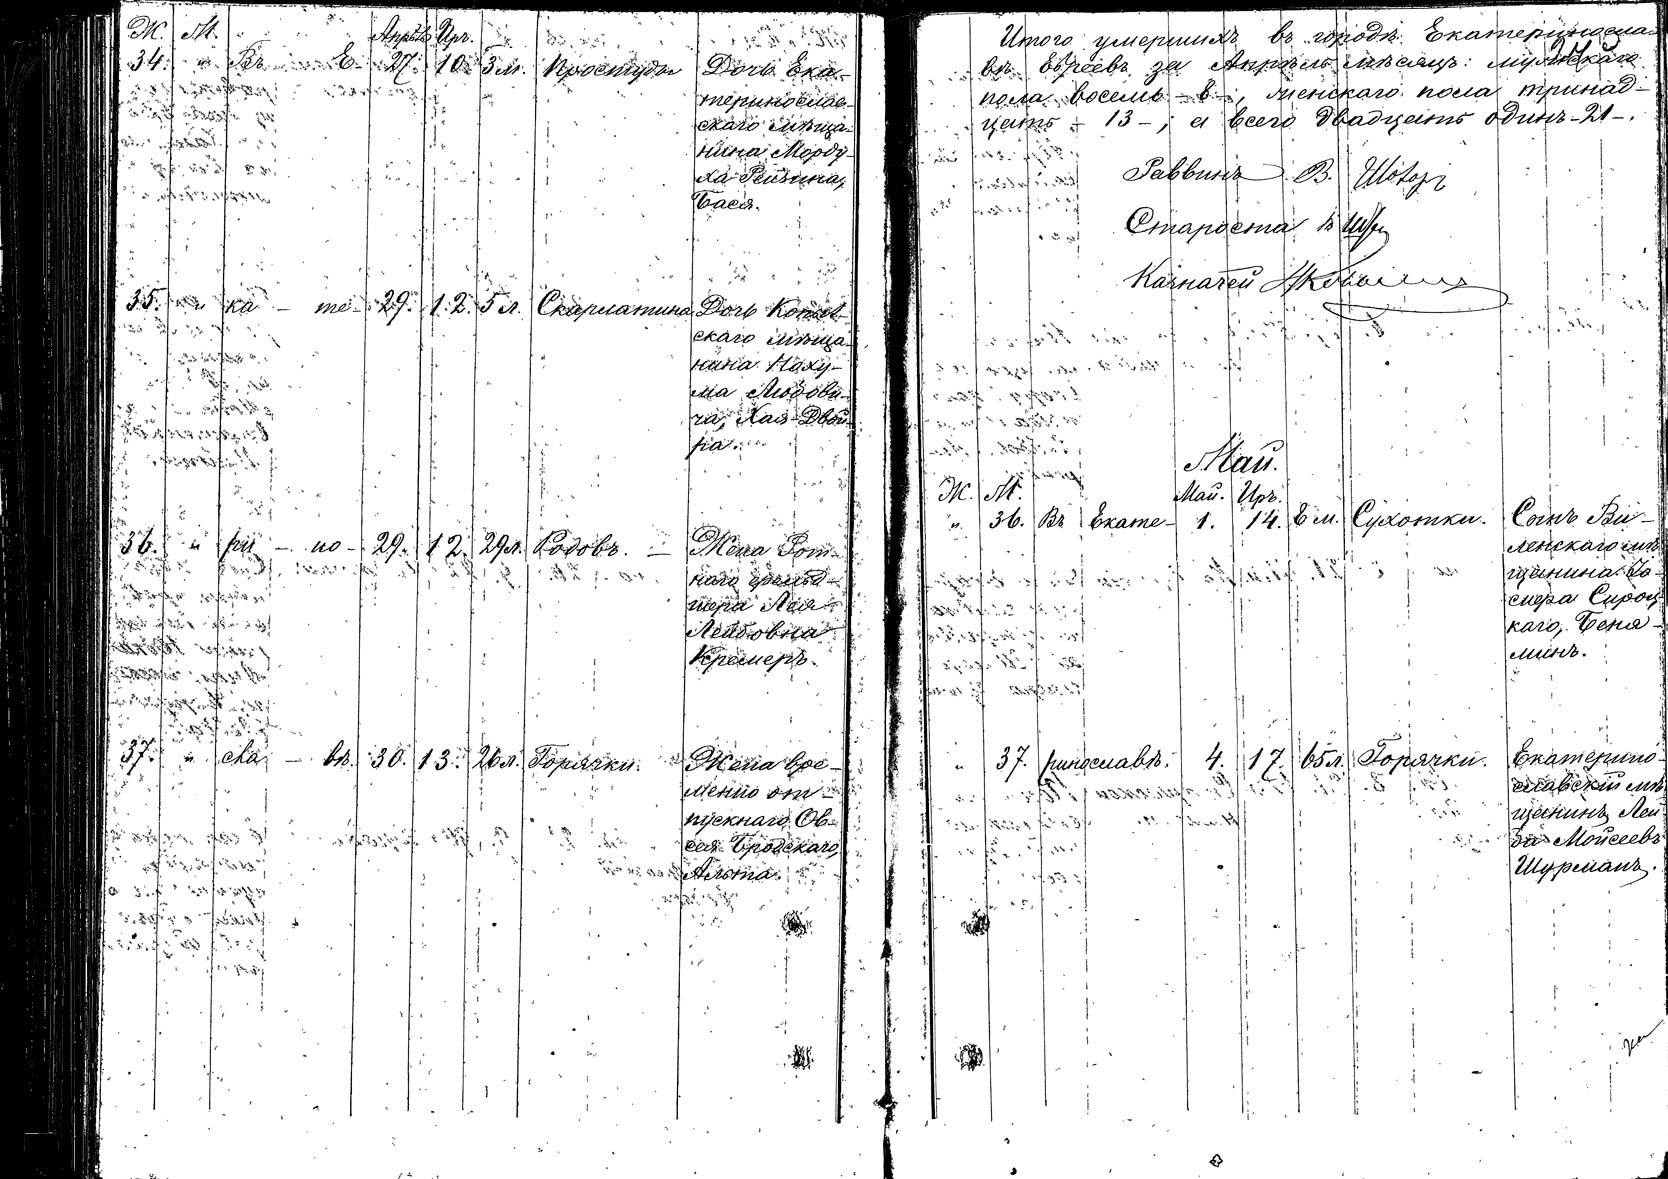 Ж. М. Апрѣль Иръ.
34. " Въ Е- 27. 10. 3 м. Простуды Дочь Ека-
теринослав-
скаго мѣща-
нина Морду-
ха Рейзина,
Бася.
35. " ка - те- 29. 12. 5 л. Скарлатина Дочь
скаго мѣща-
нина Наху-
ма Любови-
ча, Хая-Двой-
ра.
36. " ри - но- 29. 12. 29 л. Родовъ. Жена Рот-
наго фельд-
шера Лея
Лейбовна
Кремеръ.
37. " сла - вѣ. 30. 13. 26 л. Горячки. Жена вре-
менно от-
пускнаго Ов-
сея Бродскаго,
Альта.
Итого умершихъ въ городѣ Екатериносла-
вѣ евреевъ за Апрѣль мѣсяцъ: мужскаго
пола восемь - 8 -, женскаго пола тринад-
цать - 13 -; а всего двадцать одинъ - 21 -.
Раввинъ В. Шотор
Староста
Казначей
Май.
Ж. М. Май. Иръ.
" 36. Въ Екате- 1. 14. 8 м. Сухотки. Сынъ Ви-
ленскаго мѣ-
щанина
Сироц-
каго, Беня-
минъ.
" 37. ринославѣ. 4. 17. 65 л. Горячки. Екатерино-
славскій мѣ-
щанинъ Лей-
ба Мойсеевъ
Шурманъ.